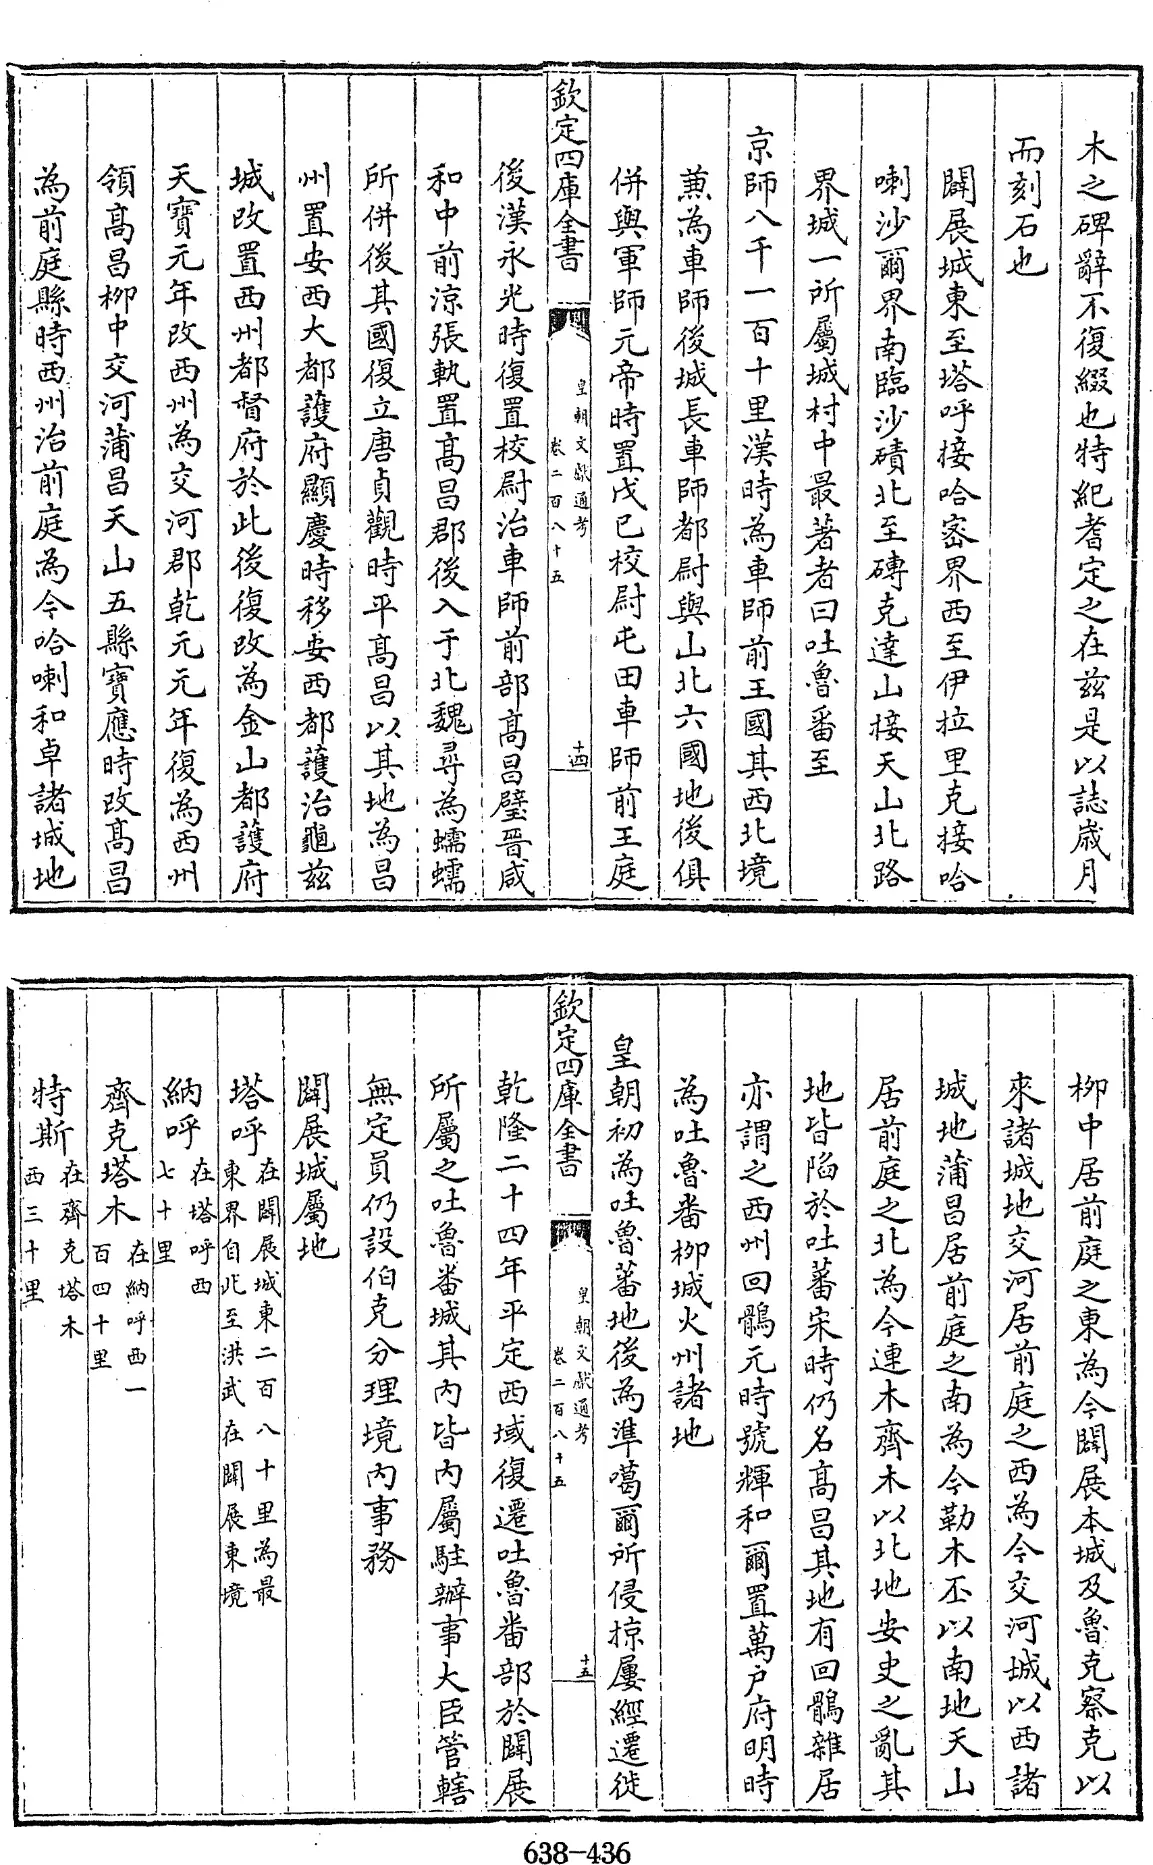 木之碑辭不復綴也特紀耆定之在兹是以誌歲月
而刻石也
闢展城東至塔呼接哈宻界西至伊拉里克接哈
喇沙爾界南臨沙磧北至磚克達山接天山北路
界城一所屬城村中最著者曰吐魯番至
京師八千一百十里漢時為車師前王國其西北境
蕪為車師後城長車師都尉與山北六國地後俱
併與軍師元帝時置戊己校尉屯田車師前王庭
欽定四庫全書
皇朝文獻通考
卷二百八十五
十四
後漢永光時復置校尉治車師前部高昌壁晉咸
和中前涼張執置高昌郡後入于北魏尋為蠕蠕
所併後其國復立唐貞觀時平高昌以其地為昌
州置安西大都護府顯慶時移安西都護治龜兹
城改置西州都督府於此後復改為金山都護府
天寶元年改西州為交河郡乾元元年復為西州
領高昌栁中交河蒲昌天山五縣寶應時改高昌
為前庭縣時西州治前庭為今哈喇和卓諸城地
栁中居前庭之東為今闢展本城及魯克察克以
來諸城地交河居前庭之西為今交河城以西諸
城地蒲昌居前庭之南為今勒木丕以南地天山
居前庭之北為今連木齊木以北地安史之亂其
地皆陷於吐蕃宋時仍名高昌其地有回鶻雜居
亦謂之西州回鶻元時號輝和爾置萬户府明時
為吐魯番栁城火州諸地
皇朝初為吐魯蕃地後為準噶爾所侵掠屢經遷徙
欽定四庫全書
皇朝文獻通考
卷二百八十五
十五
乾隆二十四年平定西域復遷吐魯番部於闢展
所屬之吐魯番城其内皆内屬駐辦事大臣管轄
無定員仍設伯克分理境内事務
闢展城屬地
塔呼在闢展城東二百八十里為最東界自此至洪武在闢展東境
納呼在塔呼西七十里
齊克塔木在納呼西一百四十里
特斯在齊克塔木西三十里
638-436